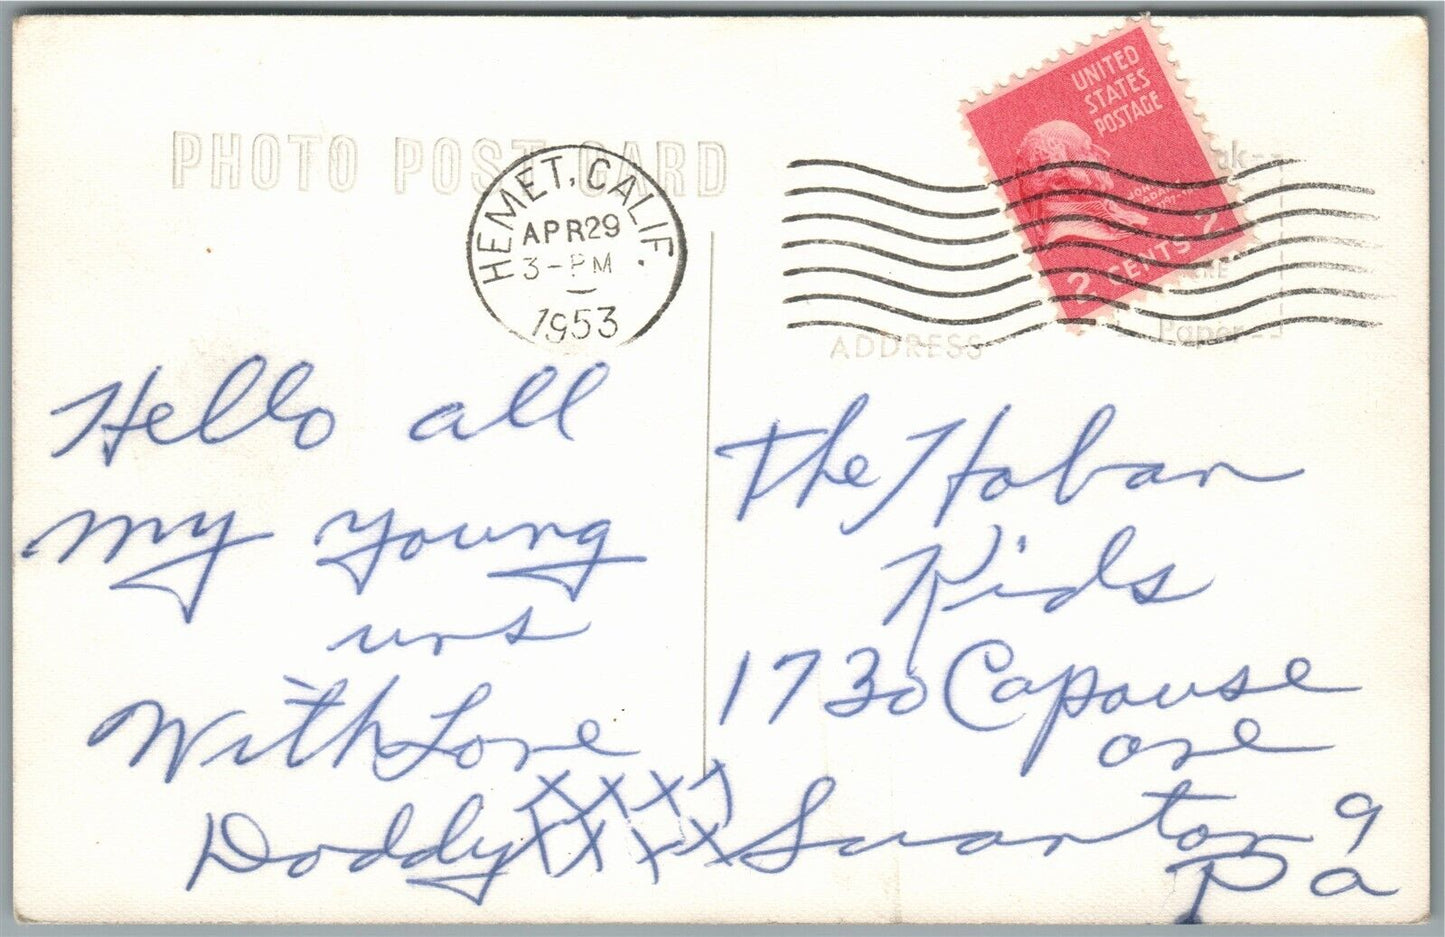 PHOTO POST CARD
HEMET, CALIF.
APR 29
3-PM
1953
UNITED
STATES
POSTAGE
JOHN
ADAMS
2 CENTS 2
ADDRESS
Paper
Hello all
my young
uns
With Love
Doddy XXXX
XXXX
The Hoban
Kids
1730 Capouse
ave
Scranton 9
Pa